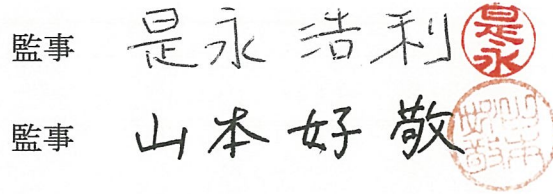 監事 是永浩利 是永
監事 山本好敬